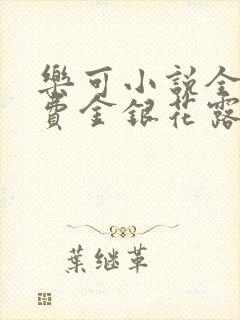 樂可小説全
費金銀花露
葉继革